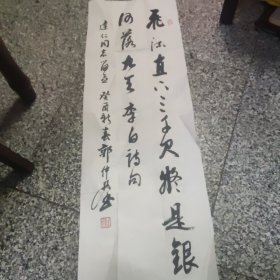 飛流直下三千尺疑是銀
河落九天 李白詩句
達仁同志 癸酉新春 郭仲